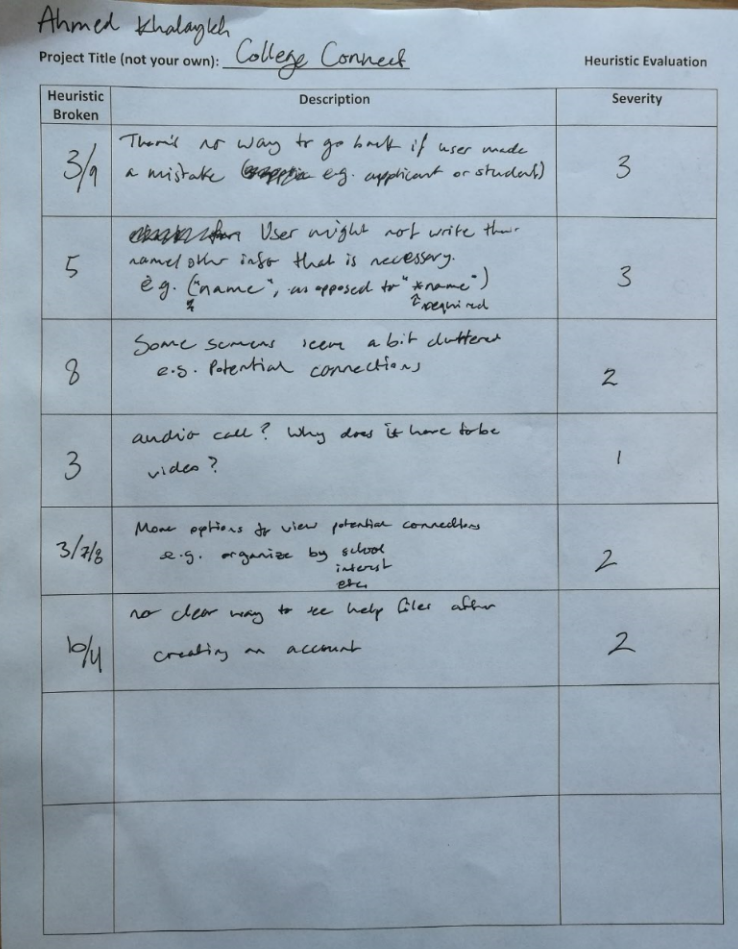 Ahmed Khalaykh
Project Title (not your own): College Connect
Heuristic Evaluation
Heuristic Broken
Description
Severity
3/9
There's no way to go back if user made
a mistake e.g. applicant or student)
3
5
User might not write their
name/other info that is necessary.
e.g. ("name", as opposed to "*name")
* required
3
8
Some screens seem a bit cluttered
e.g. Potential connections
2
3
audio call? Why does it have to be
video?
1
3/7/8
More options to view potential connections
e.g. organize by school
interest
etc.
2
10/4
no clear way to see help files after
creating an account
2